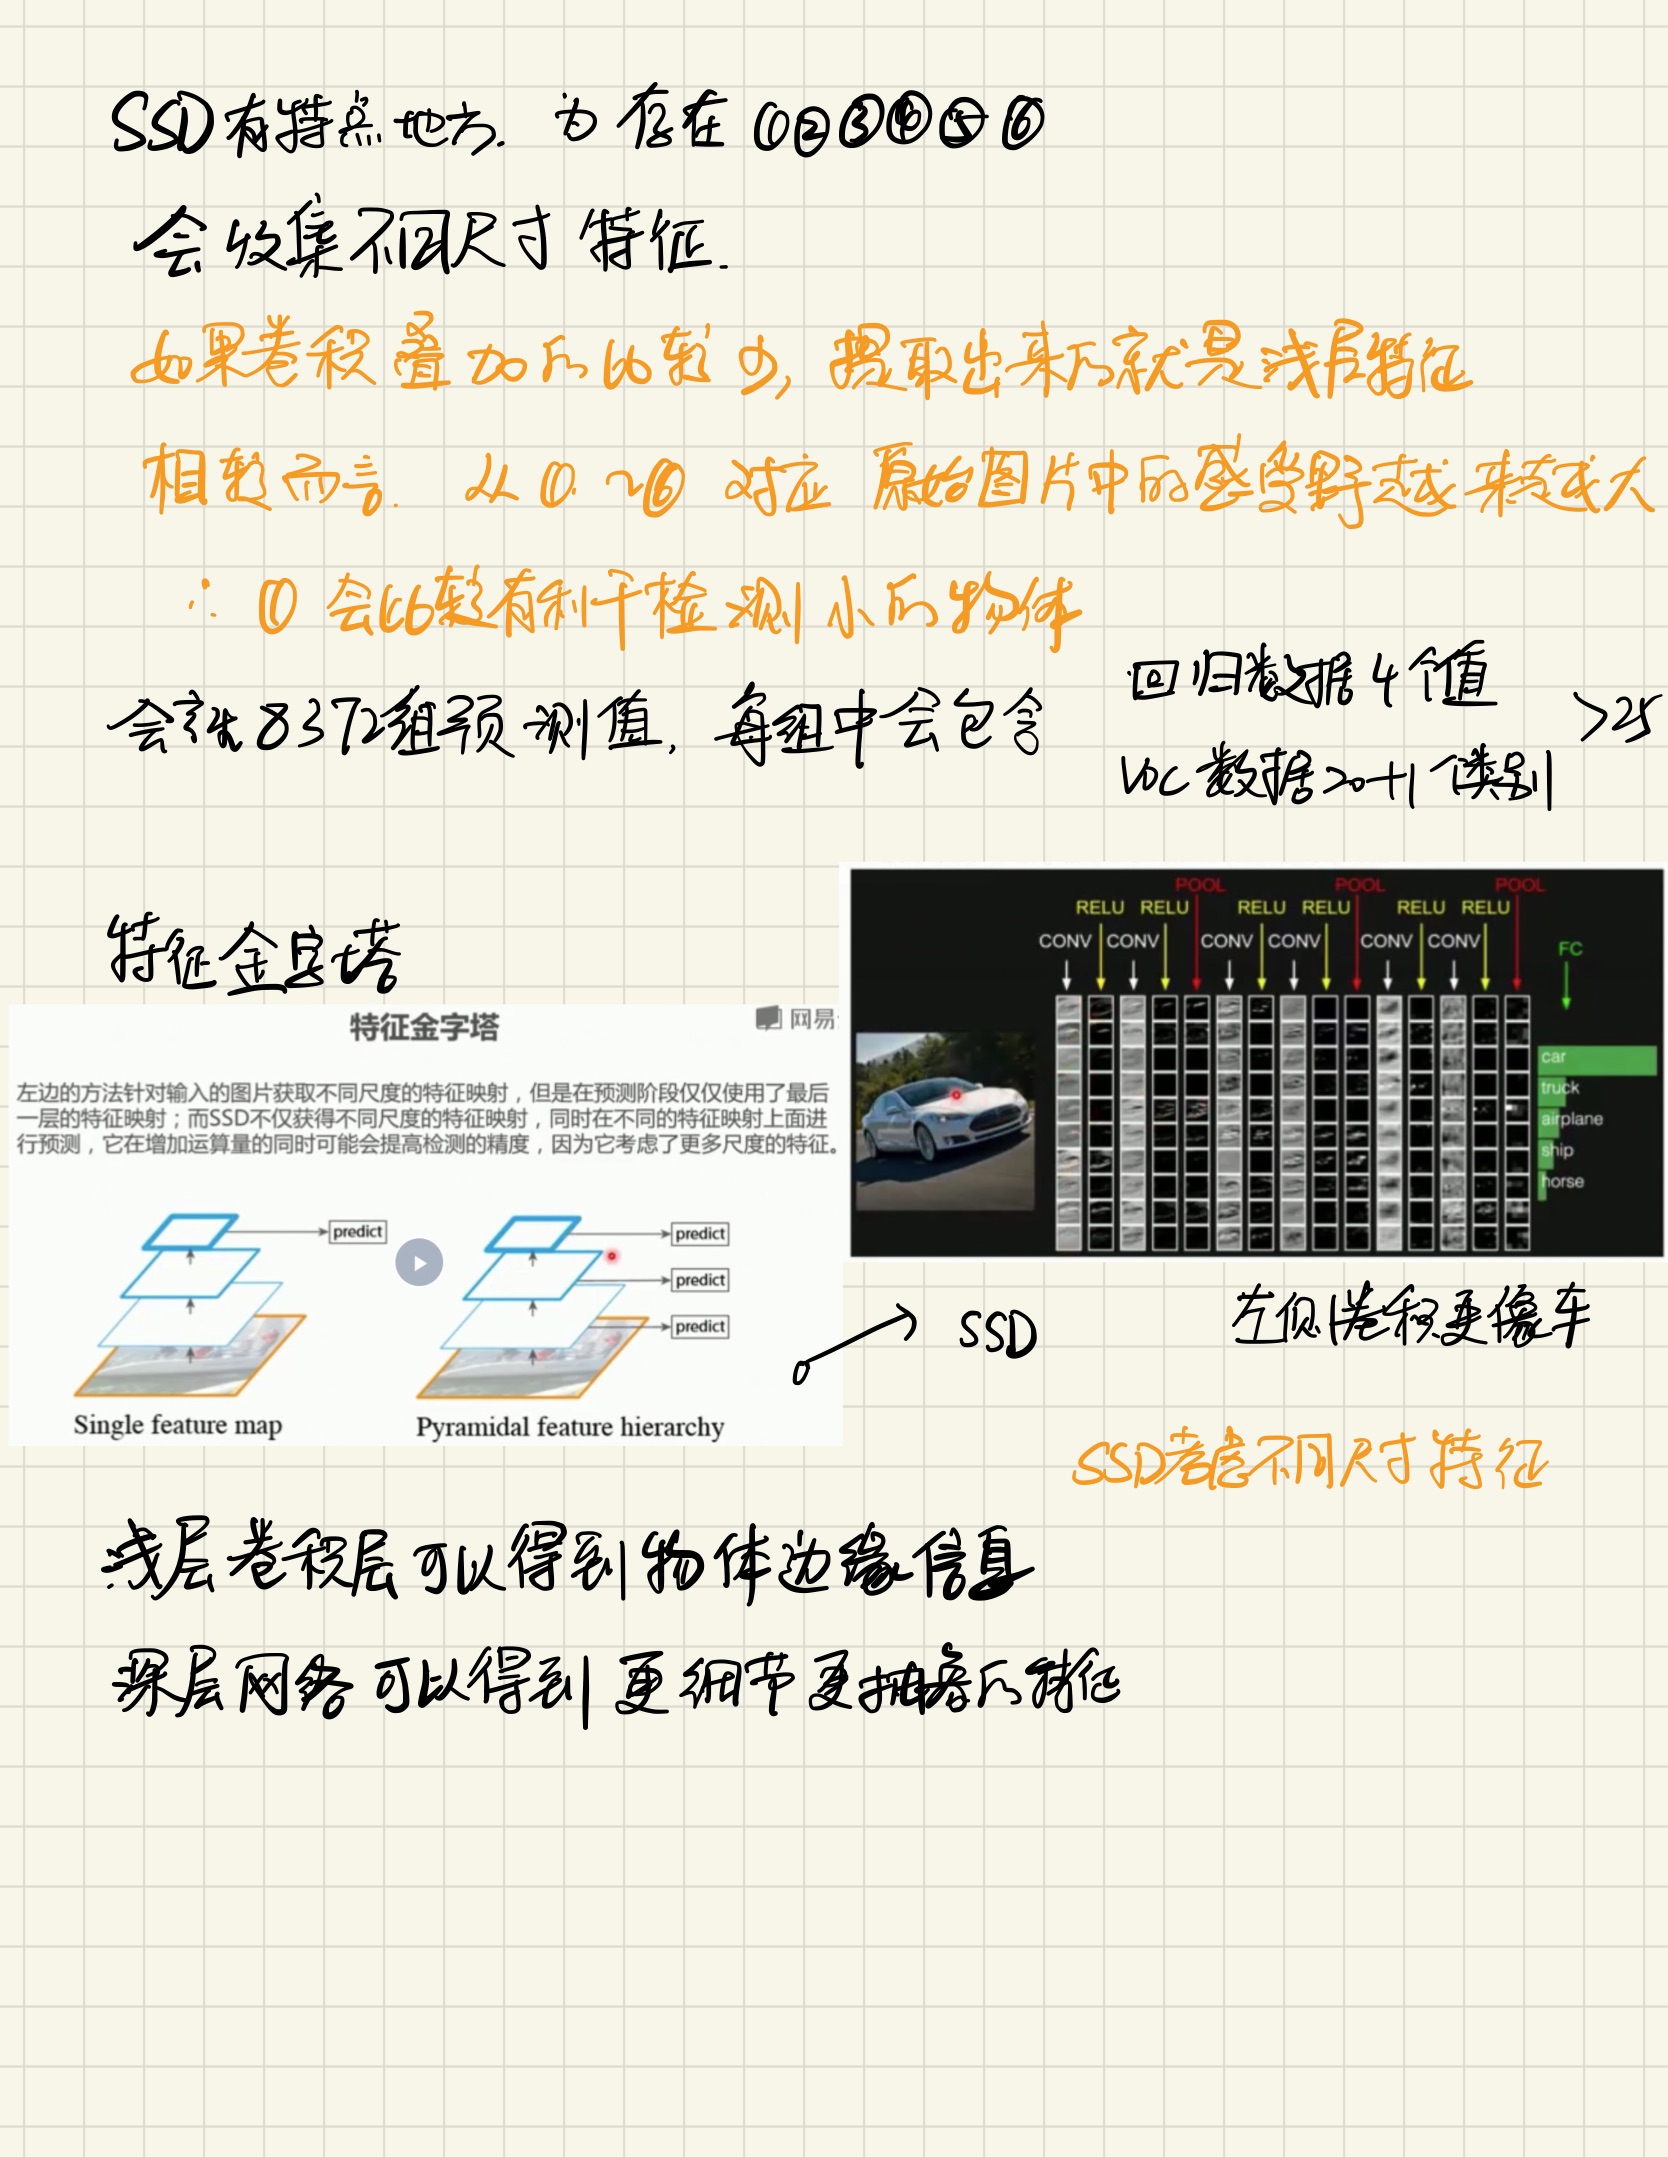 SSD有特点地方. 为存在①②③④⑤⑥
会收集不同尺寸特征.
如果卷积叠加的比较少, 提取出来的就是浅层特征
相较而言. 从①~⑥对应原始图片中的感受野越来越大
∴ ①会比较有利于检测小的物体
会 8372组预测值, 每组中会包含
回归数据4个值
VOC数据20+1个类别
>25
特征金字塔
特征金字塔
网易
左边的方法针对输入的图片获取不同尺度的特征映射，但是在预测阶段仅仅使用了最后
一层的特征映射；而SSD不仅获得不同尺度的特征映射，同时在不同的特征映射上面进
行预测，它在增加运算量的同时可能会提高检测的精度，因为它考虑了更多尺度的特征。
predict
predict
predict
predict
Single feature map
Pyramidal feature hierarchy
POOL POOL POOL
RELU RELU RELU RELU RELU RELU
CONV CONV CONV CONV CONV CONV
FC
car
truck
airplane
ship
horse
SSD
左侧卷积更像车
SSD考虑不同尺寸特征
浅层卷积层可以得到物体边缘信息
深层网络可以得到更细节更抽象的特征